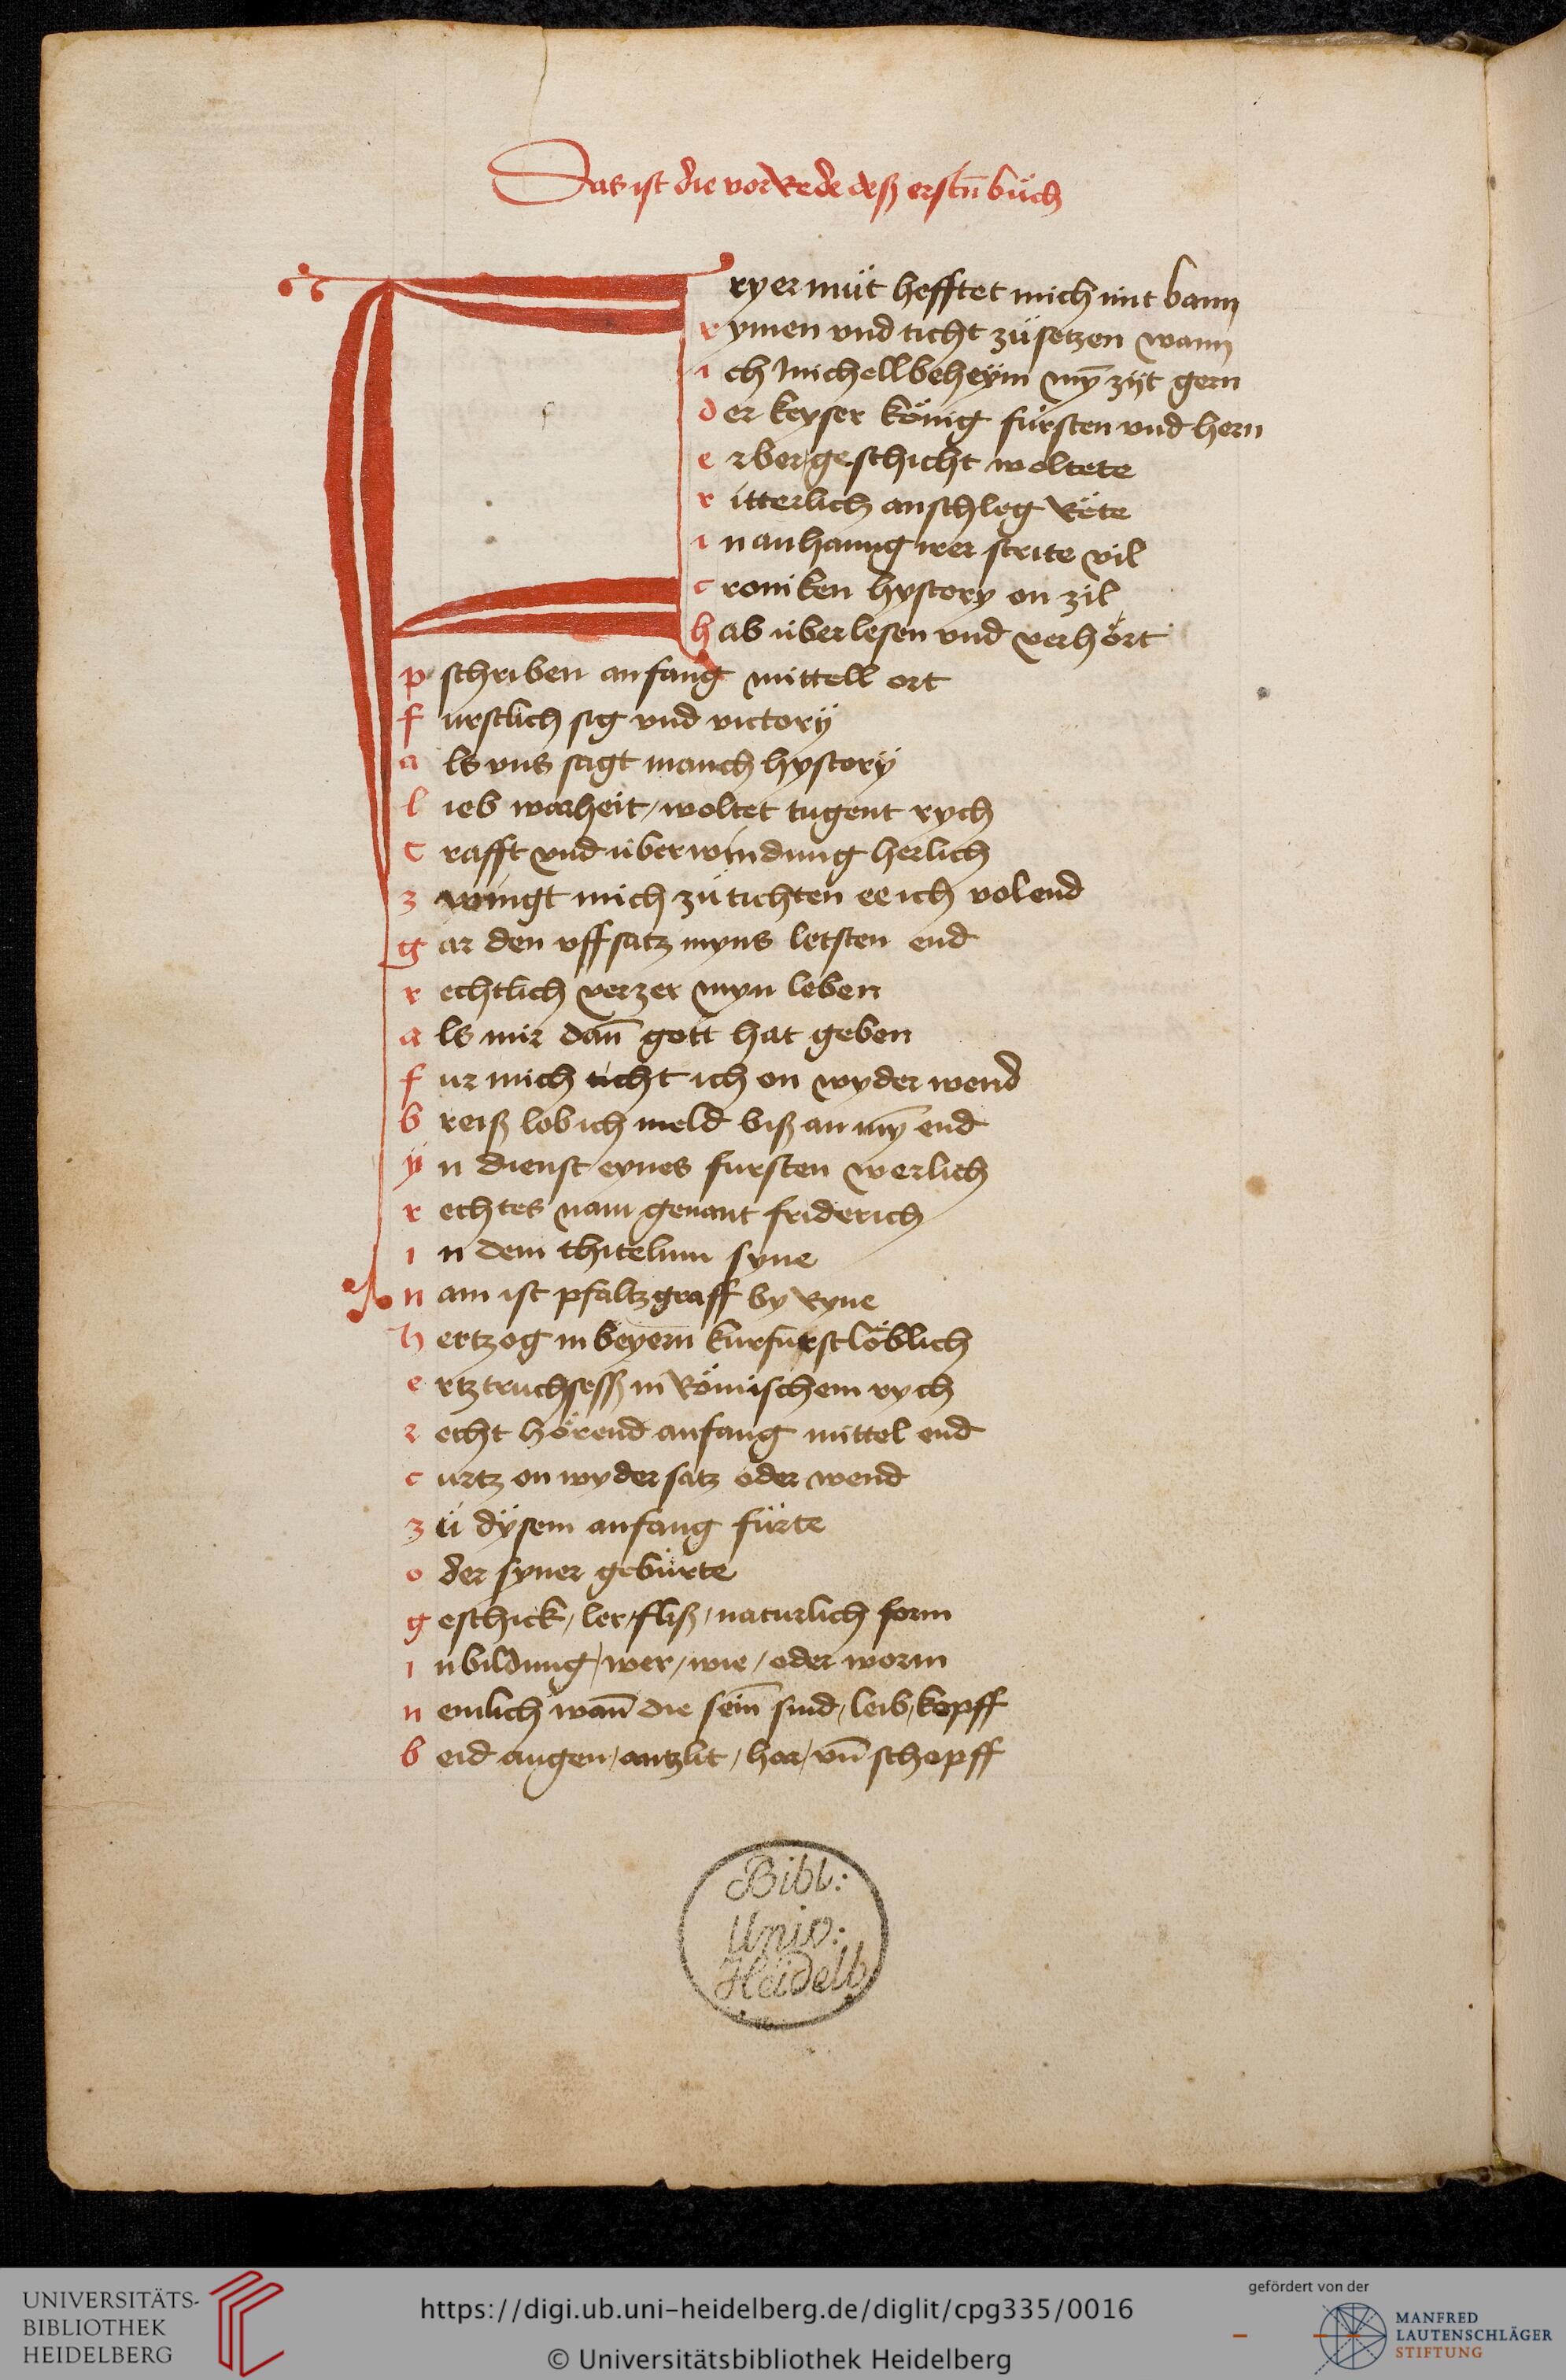 Das ist die vorrede deß erstn̄ bůch
Fryer můt hefftet mich mit bann
rymen vnd ticht zů setzen wann
ich Michell beheÿm mȳ zijt gern
der keyser könig fürsten vnd hern
erber geschicht woltete
ritterlich anschleg Rëte
in anhanng irer strite vil
croniken hystory on zil
hab überlesen vnd verhört
pschriben anfang mittell ort
furstlich sig vnd victorÿ
als vns sagt manch hystorÿ
lieb warheit / woltet tugent rych
crafft vnd überwindung herlich
zwingt mich zů tichten ee ich volend
gar den vffsatz myns letsten end
rechtlich verzer myn leben
als mir dan̄ gott hat geben
fur mich ticht ich on wyder wend
breiß lob ich meld biß an mȳ end
ÿn dienst eynes fursten werlich
rechtes nam genant friderich
in dem thitelum syne
nam ist pfaltzgraff by Ryne
hertzog in beyern̄ kurfürst löblich
ertztruchsesß in Römischem rych
recht hörend anfang mittel end
curtz on wydersatz oder wend
zů dÿsem anfang fürte
oder syner gebürte
geschick / ler / fliß / naturlich form
inbildung / wer / wie / oder worm
nemlich wan̄ die sein̄ sind / leib / kopff
beid augen / antzlit / har / vn̄ schopff
Bibl:
Univ:
Heidelb.
UNIVERSITÄTS-
BIBLIOTHEK
HEIDELBERG
https://digi.ub.uni-heidelberg.de/diglit/cpg335/0016
© Universitätsbibliothek Heidelberg
gefördert von der
MANFRED
LAUTENSCHLÄGER
STIFTUNG